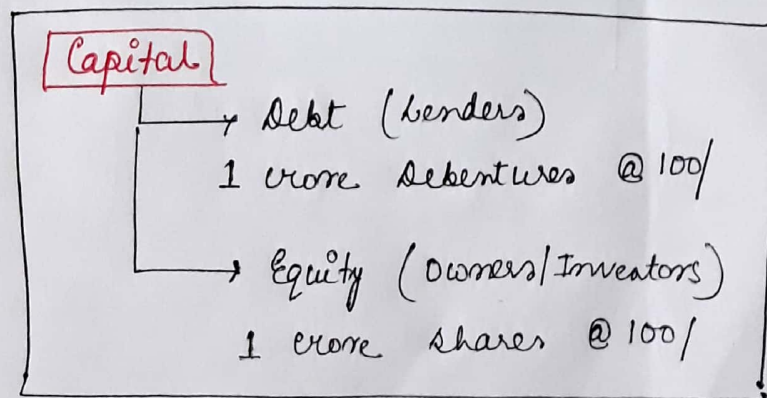 Capital
Debt (Lenders)
1 crore Debentures @ 100/
Equity (Owners/Investors)
1 crore shares @ 100/